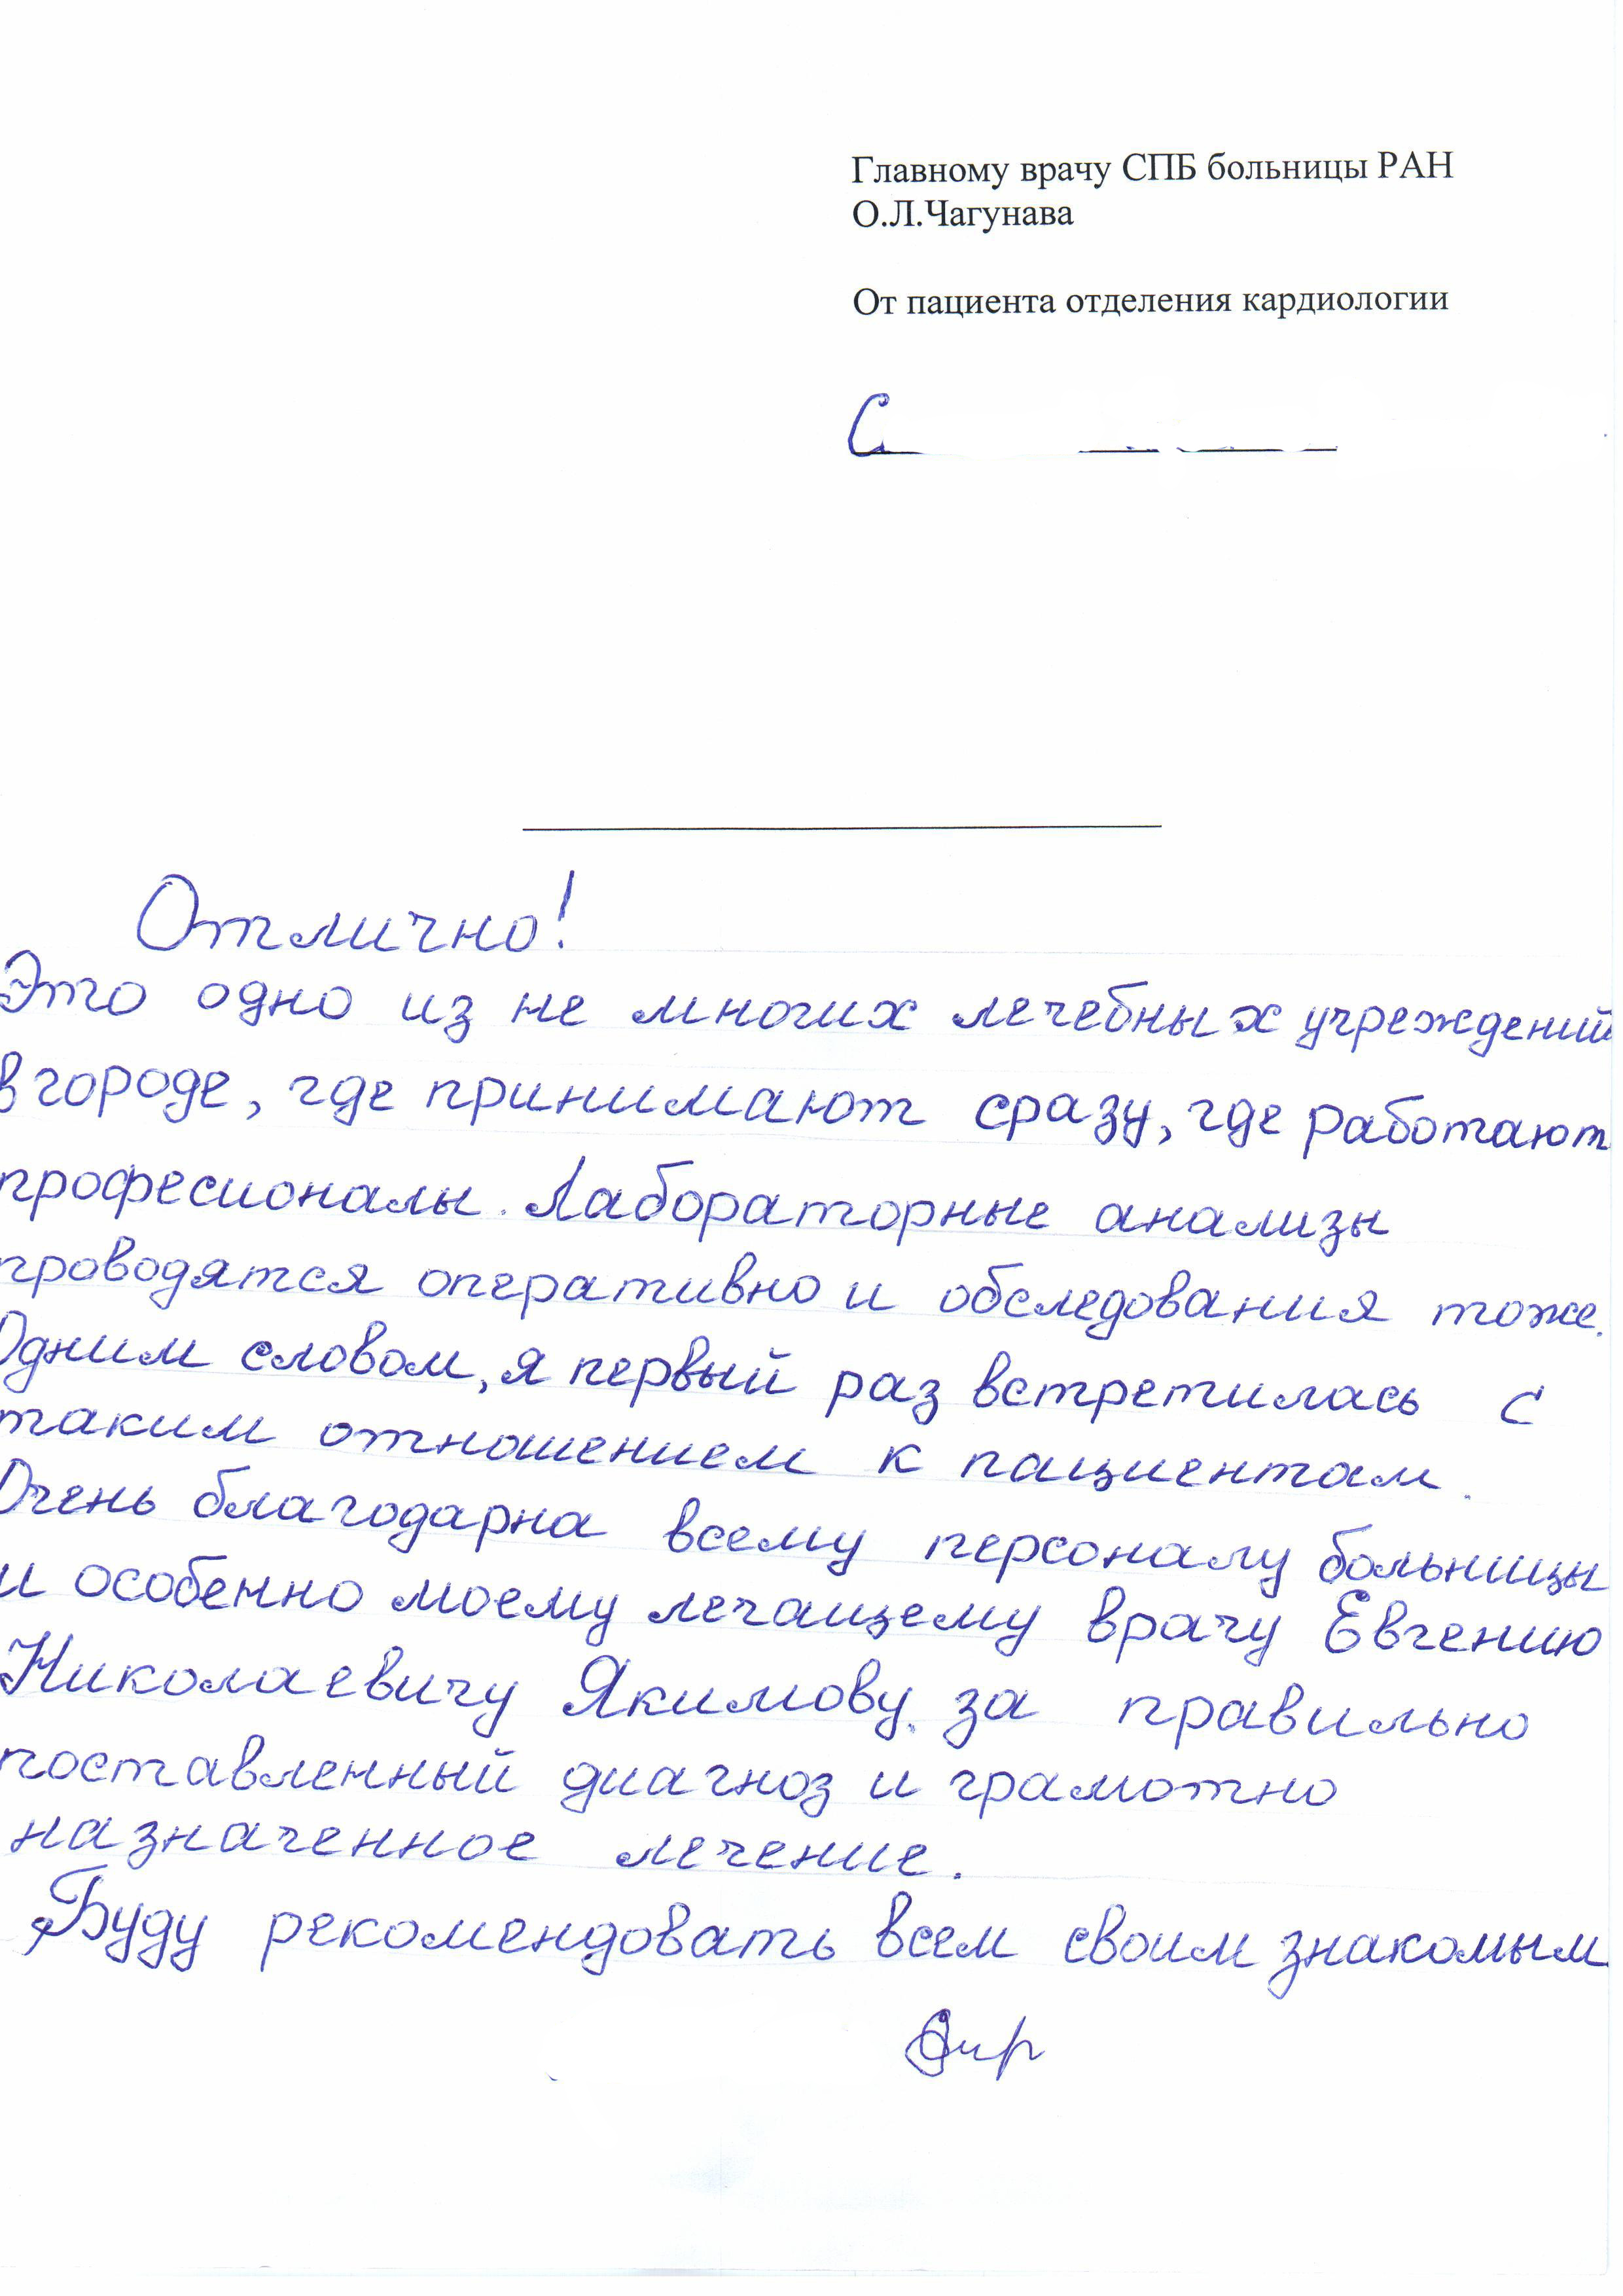 Главному врачу СПБ больницы РАН
О.Л.Чагунава
От пациента отделения кардиологии
С
Отлично!
Это одно из не многих лечебных учреждений
в городе, где принимают сразу, где работают
професионалы. Лабораторные анализы
проводятся оперативно и обследования тоже.
Одним словом, я первый раз встретилась с
таким отношением к пациентам.
Очень благодарна всему персоналу больницы
и особенно моему лечащему врачу Евгению
Николаевичу Якимову за правильно
поставленный диагноз и грамотно
назначенное лечение.
Буду рекомендовать всем своим знакомым